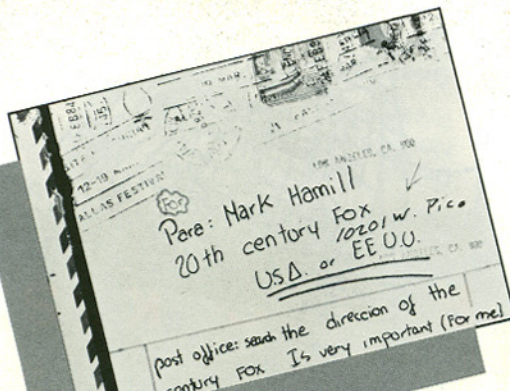 FEB84
12-19
ALLAS FESTIVA
LOS ANGELES, CA. 900
For
Para: Mark Hamill
20th century Fox
10201 W. Pico
USA. or EE U.U.
CA. 900
post office: seach the direccion of the
century Fox. Is very important (For me)